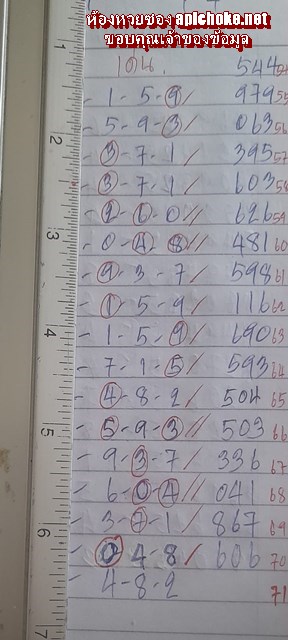 ห้องหวยซอง apichoke.net
ขอบคุณเจ้าของข้อมูล
เด่น. 544 54
- 1-5-9/ 979 55
- 5-9-3/ 063 56
- 3-7-1/ 395 57
- 3-7-1/ 603 58
- 2-6-0// 626 59
- 0-4-8// 481 60
- 9-3-7/ 598 61
- 1-5-9/ 116 62
- 1-5-9/ 690 63
- 7-1-5/ 593 64
- 4-8-2/ 504 65
- 5-9-3// 503 66
- 9-3-7/ 336 67
- 6-0-4// 041 68
- 3-7-1/ 867 69
- 0-4-8/ 606 70
- 4-8-2 71
1
2
3
4
5
6
7